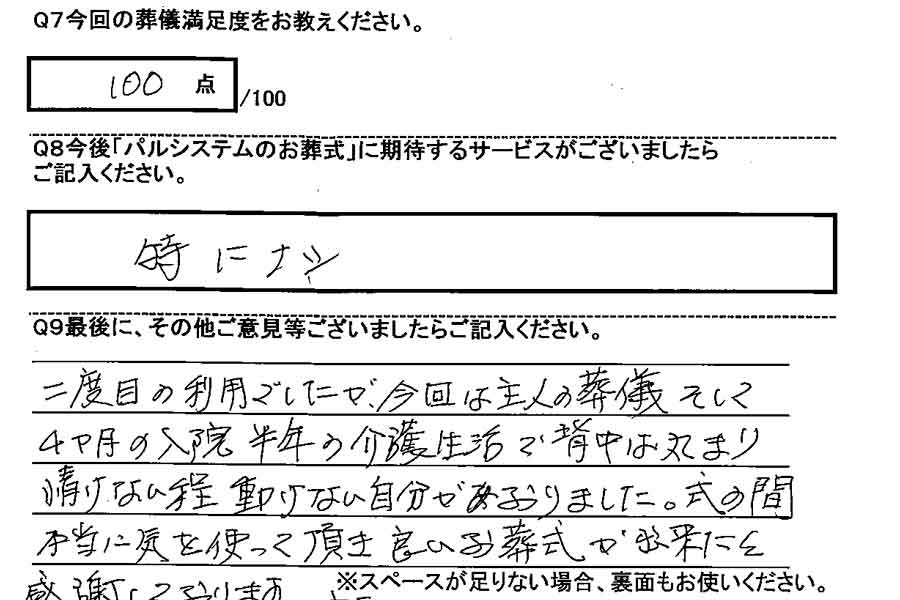 Q7今回の葬儀満足度をお教えください。
100 点
/100
Q8今後「パルシステムのお葬式」に期待するサービスがございましたら
ご記入ください。
特にナシ
Q9最後に、その他ご意見等ございましたらご記入ください。
二度目の利用でしたが、今回は主人の葬儀 そして
4ヶ月の入院 半年の介護生活で背中は丸まり
情けない程 動けない自分がありました。式の間
本当に気を使って頂き 良いお葬式が出来たと
感謝しております
※スペースが足りない場合、裏面もお使いください。